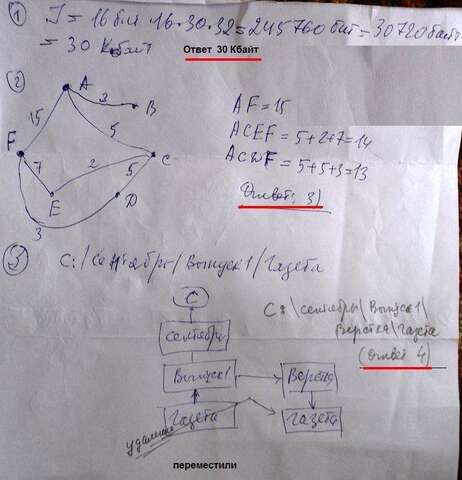 ① I = 16 бит 16·30·32 = 245760 бит = 30720 байт
= 30 Кбайт
Ответ 30 Кбайт
②
A
15
3
B
5
F
C
7
2
5
E
D
3
AF = 15
ACEF = 5+2+7 = 14
ACDF = 5+5+3 = 13
Ответ: 3)
③
C:\Сентябрь\Выпуск1\Газета
C
сентябрь
Выпуск1
Верстка
Газета
Газета
удаление
переместили
C:\сентябрь\Выпуск1\
Верстка\Газета
(Ответ 4)